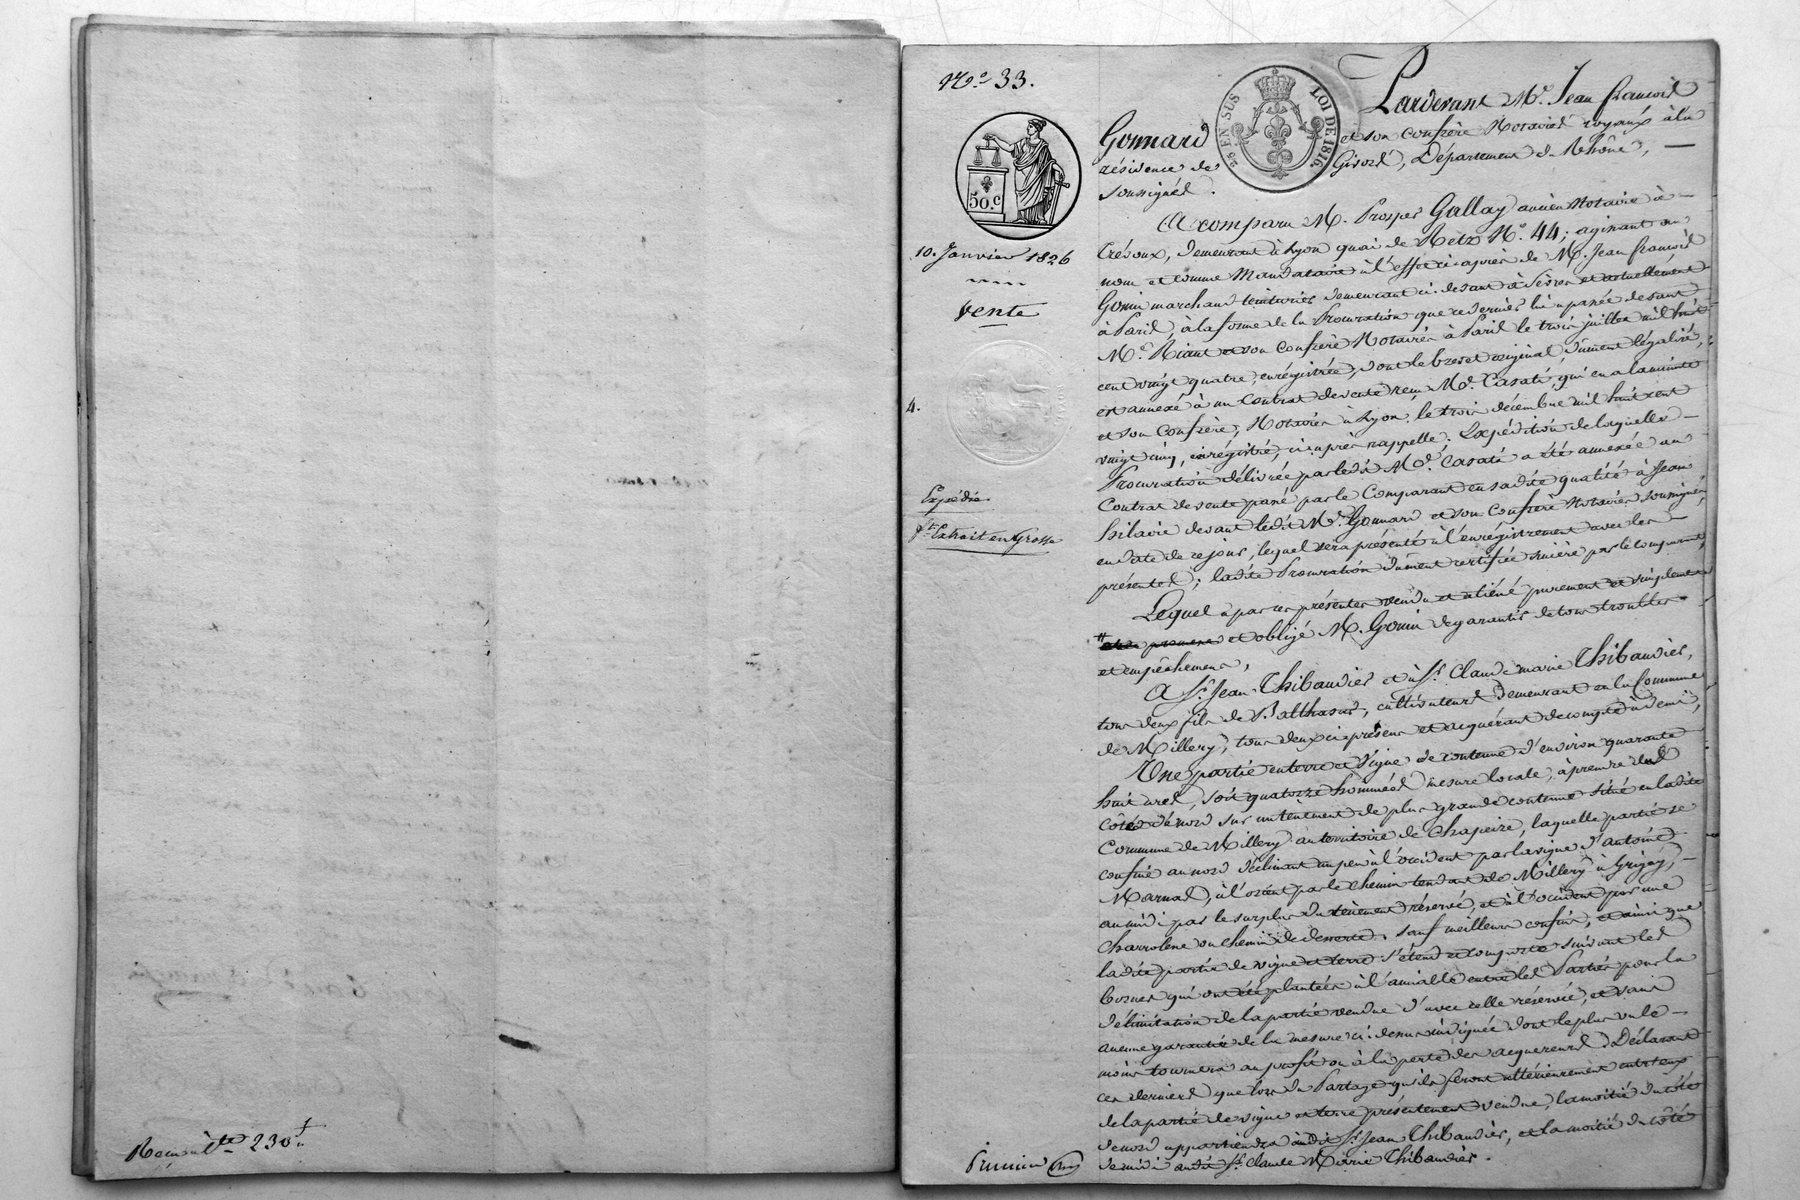 Romain te 230 f
N.º 33.
50.c
25 EN SUS LOI DE 1816.
10. Janvier 1826
Vente
4.
Expédié
f.t Extrait en Grosse
Pardevant M.e Jean françois
Gonnard et son confrère Notaires royaux à la
résidence de Givors, Département du Rhône, —
soussignés.
A comparu M. Prosper Gallay ancien Notaire à —
Trévoux, demeurant à Lyon quai de Retz N.º 44; agissant au
nom et comme Mandataire à l'effet ci après de M. Jean françois
Gonin marchand teinturier demeurant ci-devant à Sèvres et actuellement
à Paris, à la forme de la Procuration que ce dernier lui a passée devant
M.e Riant et son confrère Notaires à Paris le trois juillet mil huit
cent vingt quatre, enrégistrée, dont le brevet original, dument légalisé,
est annexé à un Contrat de vente reçu M.e Casati, qui en a la minute
et son confrère, Notaires à Lyon, le trois décembre mil huit cent
vingt cinq, enrégistré, ci après rappellé, Expédition de laquelle —
Procuration délivrée par ledit M.e Casati a été annexée au
Contrat de vente passé par le Comparant en sadite qualité à Jean
hilaire devant ledit M.e Gonnard et son Confrère Notaires soussignés,
en date de ce jour, lequel sera présenté à l'enrégistrement avec les —
présentes; ladite Procuration dument certifiée sincère par le comparant,
Lequel a par ces présentes vendu et aliéné purement et simplement
et obligé M. Gonin de garantir de tous troubles
et empêchemens,
A S.r Jean Thibaudier et à S.r Claude marie Thibaudier,
tous deux fils de Balthasard, cultivateurs demeurant en la Commune
de Millery, tous deux ci présens et acquérant de compte à demi,
Une partie en terre et Vigne de contenue d'environ quarante
huit ares, soit quatorze hommées mesure locale, à prendre du
côté de nord sur un tènement de plus grande contenue situé en ladite
Commune de Millery au territoire de Chapeize, laquelle partie se
confine au nord déclinant un peu à l'occident par la vigne d'antoine
Marnas, à l'orient par le chemin tendant de Millery à Grigny, —
au midi par le surplus du tènement réservé, et à l'occident par une
charrolene ou chemin de desserte, sauf meilleurs confins, et ainsi que
ladite partie de vigne et terre s'étend et comporte suivant les
bornes qui ont été plantées à l'amiable entre les Parties pour la
délimitation de la partie vendue d'avec celle réservée, et sans
aucune garantie de la mesure ci dessus indiquée dont le plus ou le —
moins tournera au profit ou à la perte des acquereurs. Déclarant
ces derniers que lors du Partage qu'ils feront ultérieurement entr'eux
de la partie de vigne et terre présentement vendue, la moitié du côté
de nord appartiendra audit S.r Jean Thibaudier, et la moitié du côté
de midi audit S.r Claude Marie Thibaudier.